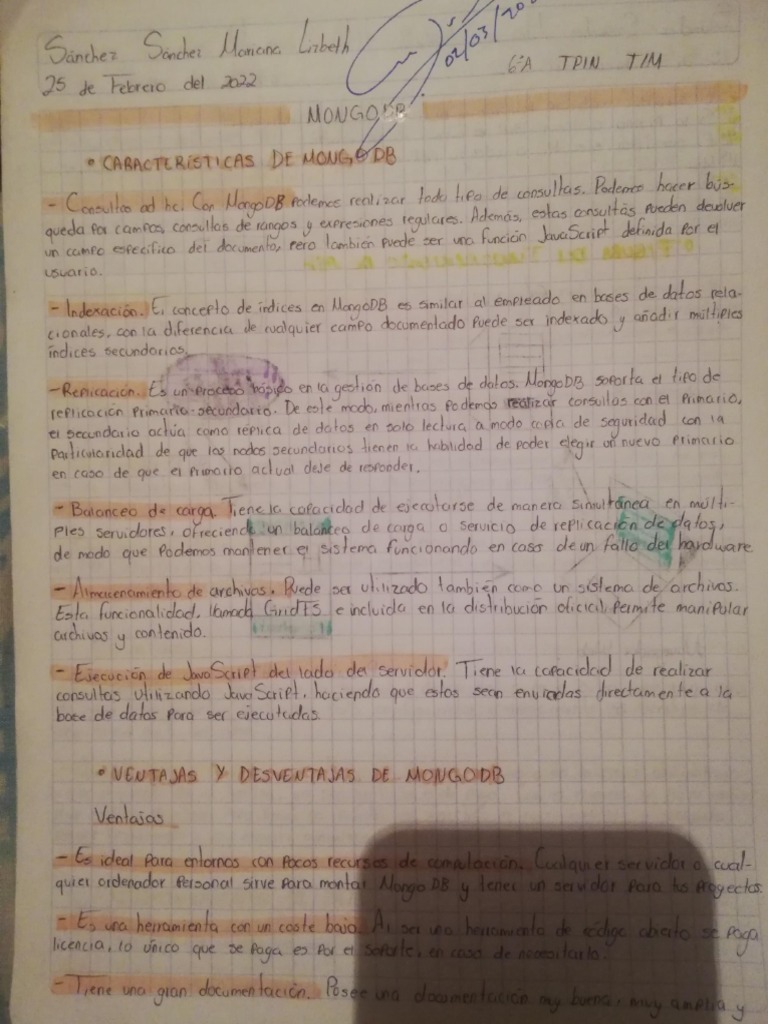 Sánchez Sanchez Mariana Lizbeth
02/03/20
25 de Febrero del 2022
6°A TPIN T/M
MONGODB
• CARACTERÍSTICAS DE MONGODB
- Consultas ad hc. Con MongoDB podemos realizar todo tipo de consultas. Podemos hacer bús-
queda por campos, consultas de rangos y expresiones regulares. Además, estas consultas pueden devolver
un campo específico del documento, pero también puede ser una función JavaScript definida por el
usuario.
- Indexación. El concepto de índices en MongoDB es similar al empleado en bases de datos rela-
cionales, con la diferencia de cualquier campo documentado puede ser indexado y añadir múltiples
índices secundarios.
- Replicación. Es un proceso rápido en la gestión de bases de datos. MongoDB soporta el tipo de
replicación primario-secundario. De este modo, mientras podemos realizar consultas con el primario,
el secundario actúa como réplica de datos en solo lectura a modo copia de seguridad con la
particularidad de que los nodos secundarios tienen la habilidad de poder elegir un nuevo primario
en caso de que el primario actual deje de responder.
- Balanceo de carga. Tiene la capacidad de ejecutarse de manera simultánea en múlti-
ples servidores, ofreciendo un balanceo de carga o servicio de replicación de datos,
de modo que podemos mantener el sistema funcionando en caso de un fallo del hardware
- Almacenamiento de archivos. Puede ser utilizado también como un sistema de archivos.
Esta funcionalidad, llamada GridFS e incluida en la distribución oficial. Permite manipular
archivos y contenido.
- Ejecución de JavaScript del lado del servidor. Tiene la capacidad de realizar
consultas utilizando JavaScript, haciendo que estas sean enviadas directamente a la
base de datos para ser ejecutadas.
• VENTAJAS Y DESVENTAJAS DE MONGODB
Ventajas
- Es ideal para entornos con pocos recursos de computación. Cualquier servidor o cual-
quier ordenador personal sirve para montar MongoDB y tener un servidor para tus proyectos.
- Es una herramienta con un coste bajo. Al ser una herramienta de código abierto se paga
licencia, lo único que se paga es por el soporte, en caso de necesitarlo.
- Tiene una gran documentación. Posee una documentación muy buena, muy amplia y